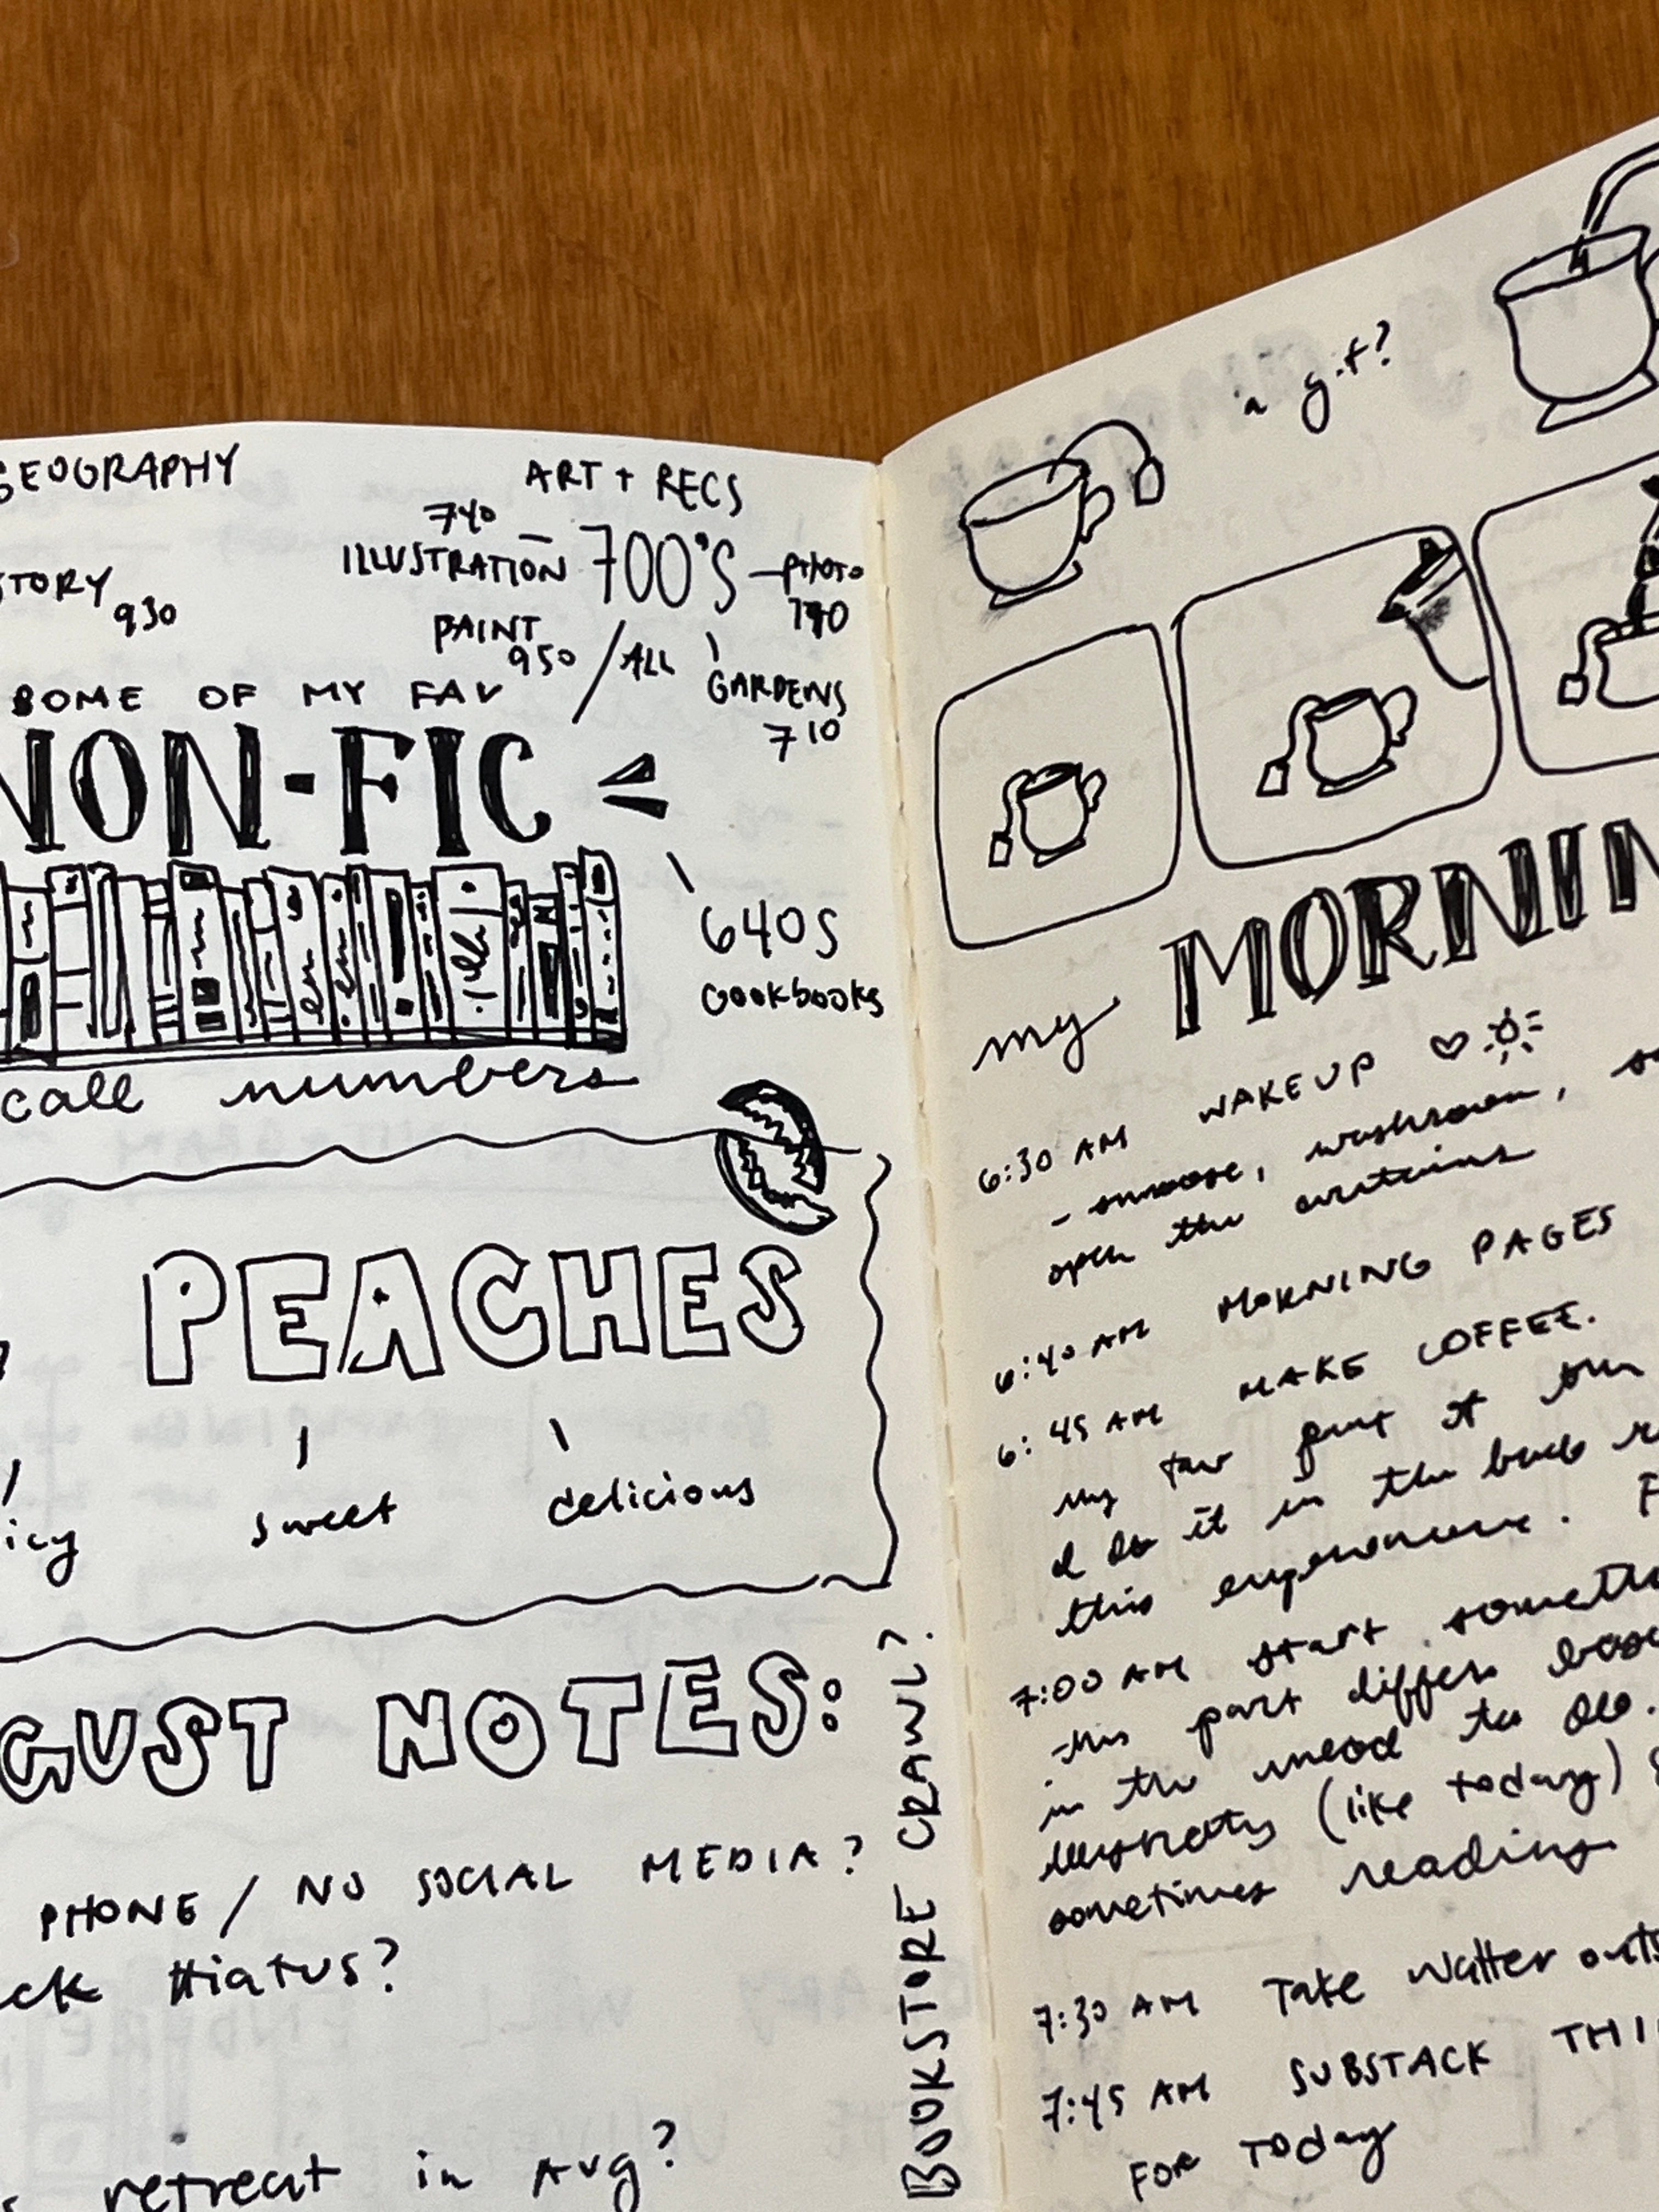 GEOGRAPHY
STORY 930
ART + RECS
740
ILLUSTRATION
700'S
PHOTO
PAINT
950 / ALL
GARDENS
710
SOME OF MY FAV
NON-FIC
640S
cookbooks
call numbers
PEACHES
icy
sweet
delicious
GUST NOTES:
PHONE / NO SOCIAL MEDIA?
ck Hiatus?
retreat in Aug?
BOOKSTORE CRAWL?
a gif?
my MORNIN
6:30 AM WAKEUP
- snooze, washroom, s
open the curtains
6:40 AM MORNING PAGES
6:45 AM MAKE COFFEE.
my fav part it
I do it in the
this experience. F
7:00 AM start someth
this part differs bas
in the mood to do.
(like today)
sometimes reading
7:30 AM Take Walter outs
7:45 AM SUBSTACK THI
FOR TODAY